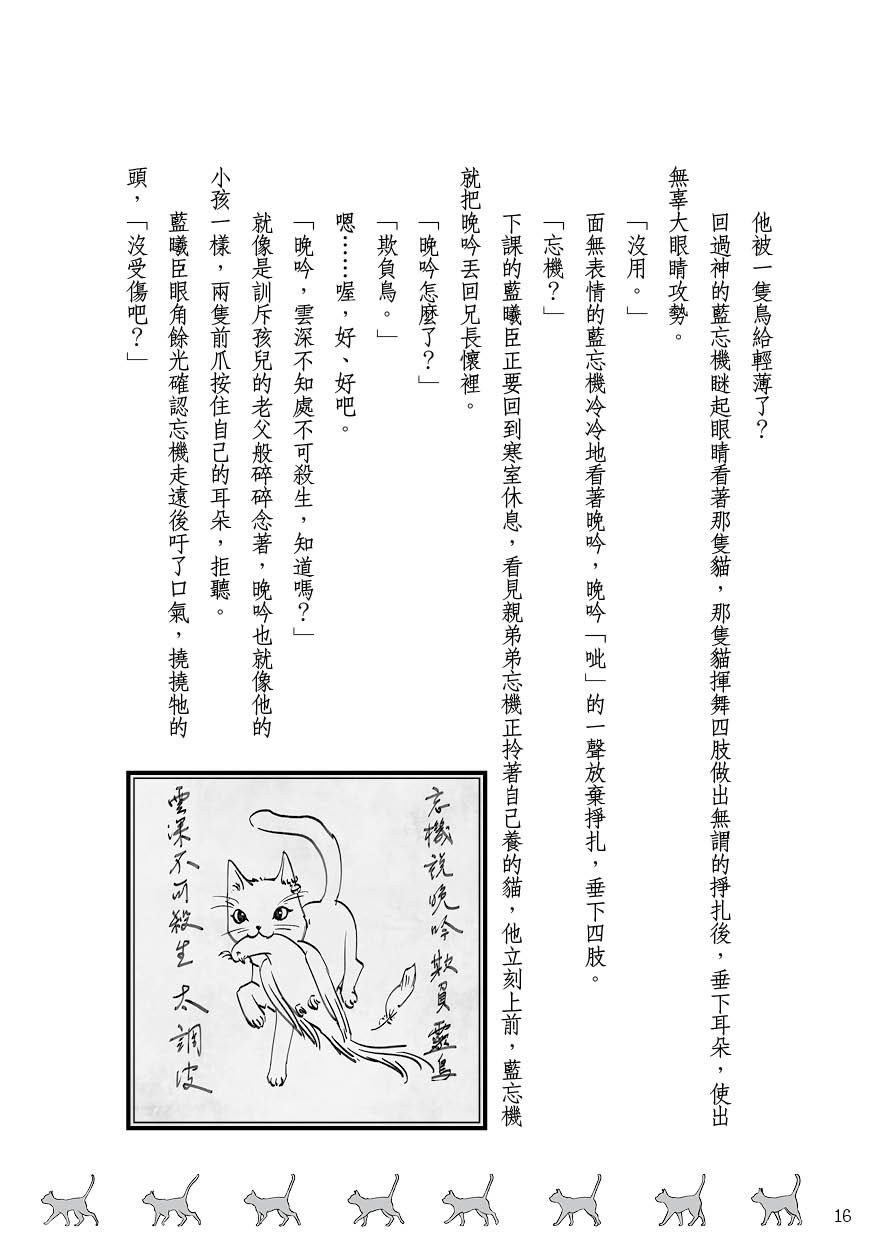 他被一隻鳥給輕薄了？
回過神的藍忘機瞇起眼睛看著那隻貓，那隻貓揮舞四肢做出無謂的掙扎後，垂下耳朵，使出
無辜大眼睛攻勢。
「沒用。」
面無表情的藍忘機冷冷地看著晚吟，晚吟「呲」的一聲放棄掙扎，垂下四肢。
「忘機？」
下課的藍曦臣正要回到寒室休息，看見親弟弟忘機正拎著自己養的貓，他立刻上前，藍忘機
就把晚吟丟回兄長懷裡。
「晚吟怎麼了？」
「欺負鳥。」
嗯……喔，好、好吧。
「晚吟，雲深不知處不可殺生，知道嗎？」
就像是訓斥孩兒的老父般碎碎念著，晚吟也就像他的
小孩一樣，兩隻前爪按住自己的耳朵，拒聽。
藍曦臣眼角餘光確認忘機走遠後吁了口氣，撓撓牠的
頭，「沒受傷吧？」
忘機說晚吟欺負靈鳥
雲深不可殺生 太調皮
16